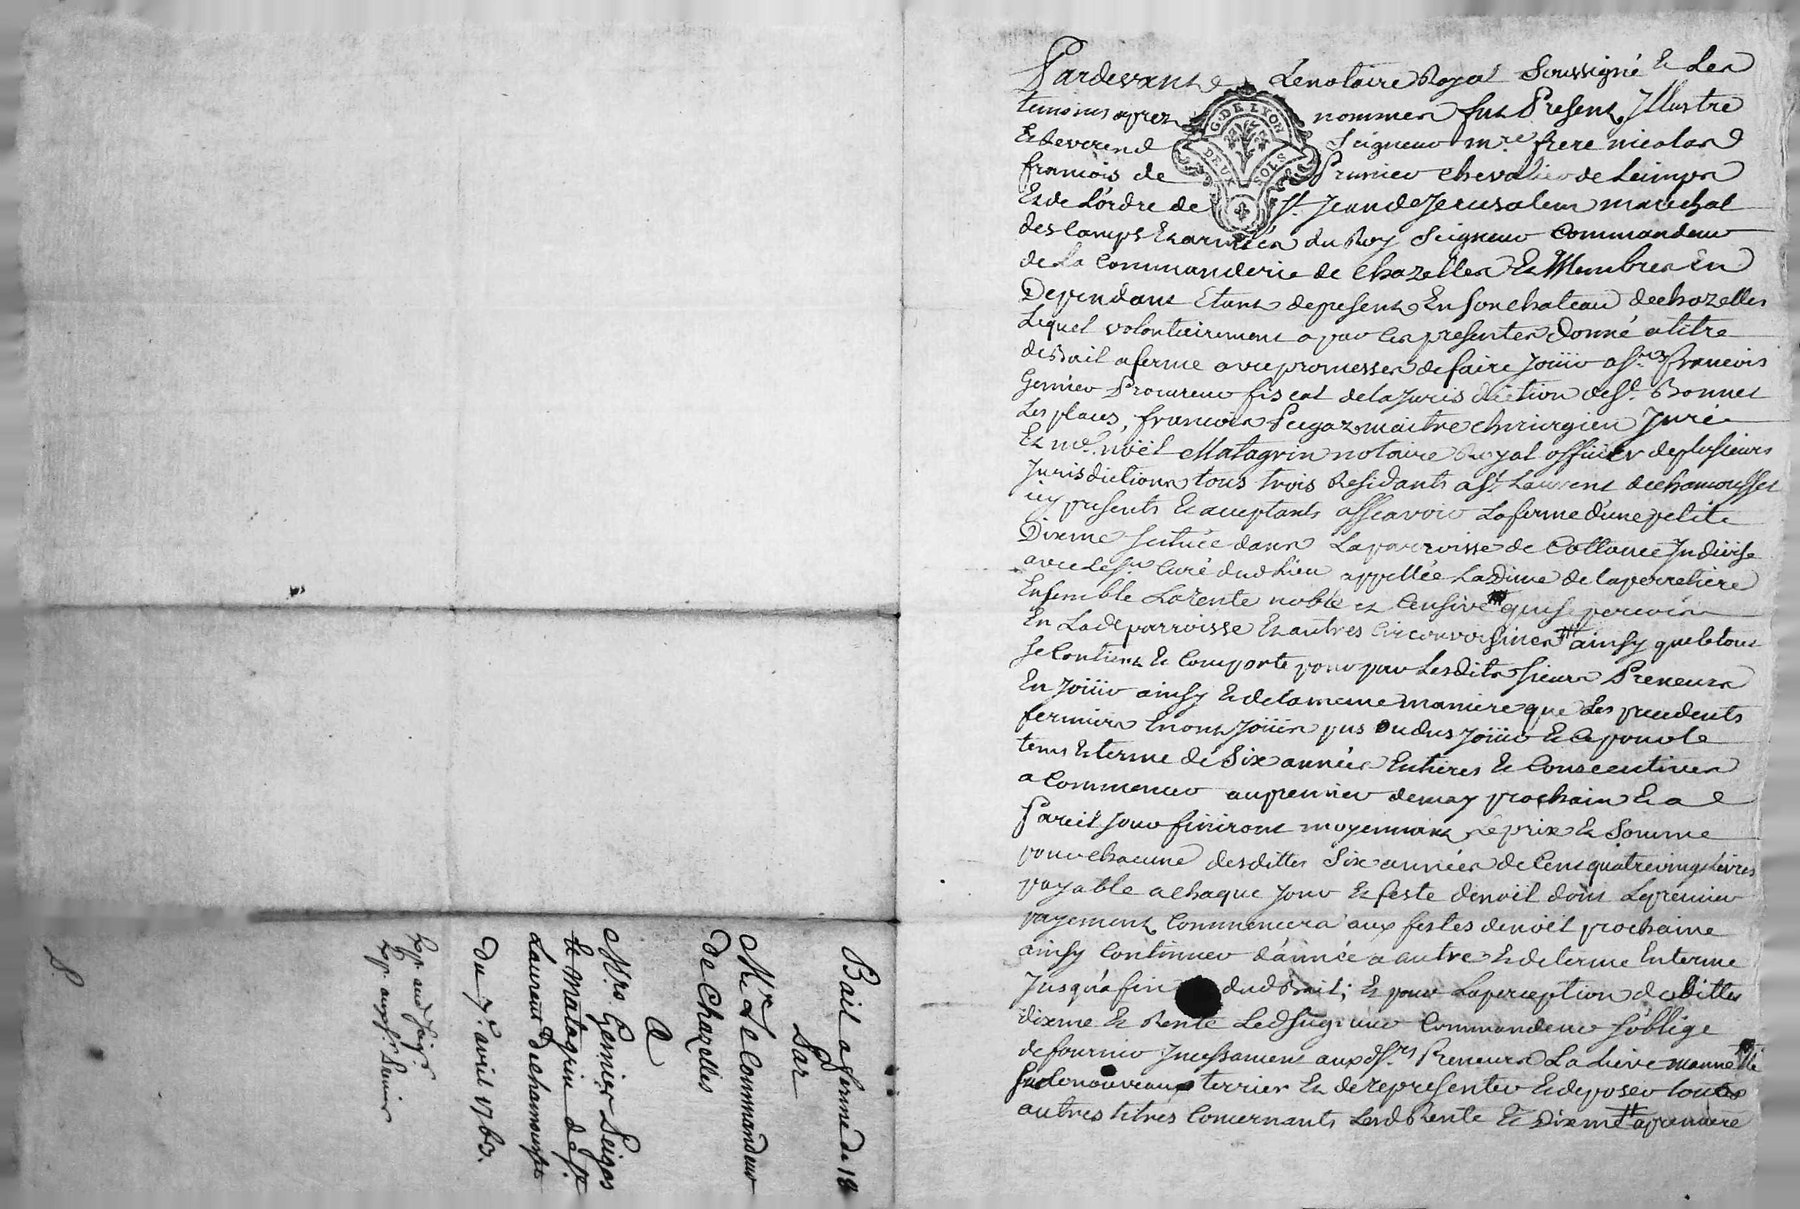 Pardevant Le notaire Royal Soussigné & Les
temoins aprez nommes fut Present Jllustre
G. DE LYON
DEUX SOLS
Et Reverend Seigneur mre frere nicolas
francois de Prunier chevalier de
Et de L'ordre de St. Jean de Jerusalem marechal
des Camps Et armées du Roy Seigneur Commandeur
de La Commanderie de Chazelles Et Membres En
Dependant Etant de present En son chateau de chazelles
Lequel volontairement a par Ces presentes donné a titre
de Bail a ferme avec promesses de faire Joüir a sr. francois
Gernier Procureur fiscal de la Jurisdiction de St. Bonnet
Les places, francois Peigaz maitre chirurgien Juré
Et me. noël Matagrin notaire Royal officier de plusieurs
Jurisdictions tous trois Residants a St. Laurent de chamousset
icy presents Et acceptants assavoir La ferme d'une petite
Dixme scituée dans La parroisse de Collonce Jndivise
avec le sr. Curé dud Lieu appellée La Dime de la perretiere
Ensemble La rente noble et Censive qui se percoivent
En Lade parroisse Et autres Circonvoisines ainsy que le tout
se Contient Et Comporte pour par Lesdits sieurs Preneurs
En Joüir ainsy Et de la meme maniere que Les precedents
fermiers En ont Joüis pus ou dus Joüir Et Ce pour le
tems Et terme de Six années Entieres Et Consecutives
a Commencer au premier de may prochain Et a
Pareil Jour finiront moyennant Le prix Et Somme
pour chacune desdittes Six années de Cent quatrevingt Livres
payable a chaque Jour Et feste de noël dont Le premier
payement Commencera aux festes de noël prochaine
ainsy Continuer d'année a autre Et de terme En terme
Jusqu'a fin dud Bail; Et pour La perception desdittes
dixme Et Rente Led Seigneur Commandeur s'oblige
de fournir Jncessament aux d. srs Preneurs La Lieve
nouveaux terrier Et de representer Et deposer toutes
autres titres Concernants Lesd Rente Et Dixme a premiere
Bail a ferme de 18
Par
Mr. Le Commandeur
De Chazelles
A
Mrs. Gernier Peigas
& Matagrin de St.
Laurent de chamousset
Du 7e. avril 1763.